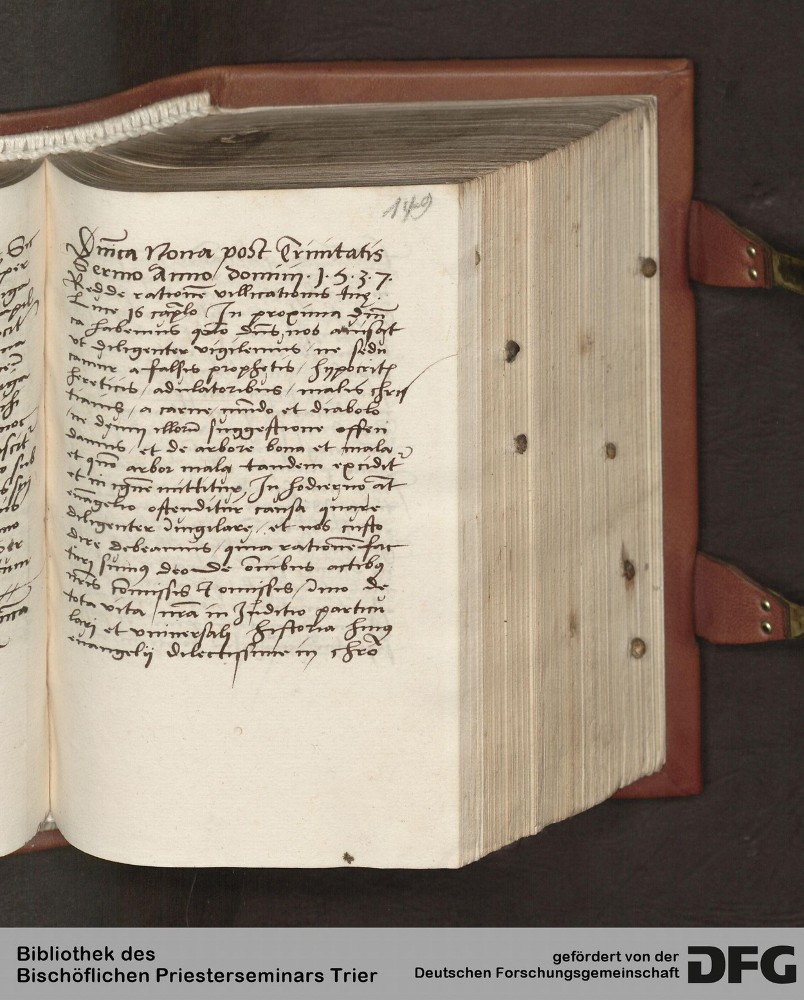 149
Dnica Nona post Trinitatis
Sermo Anno domini · 1 · 5 · 3 · 7 ·
Redde rationē villicationis tuę ·
Luce 16 caplo In proxima dni
ca habemus quō dns nos amonuit
ut diligenter vigilemus / ne sedu
camur a falsis prophetis / hypocritis
hereticis / adulatoribus / malis chris
tianis / a carne / mūdo et diabolo
/ne deum illorū suggestione offen
damus / et de arbore bona et mala
et quō arbor mala tandem excidit~
et in ignē mittitur / In hodierno āt
euāgelio ostenditur causa quare
diligenter vigilare / et nos custo
dire debeamus / quia rationē fac
turi sumꝰ deo de oībus actibꝫ
nrīs cōmissis et omissis / ymo de
tota vita nrā in Iuditio particu
lari et vniuersali historia huiꝰ
euangelij dilectissime in chrō
Bibliothek des
Bischöflichen Priesterseminars Trier
gefördert von der
Deutschen Forschungsgemeinschaft
DFG